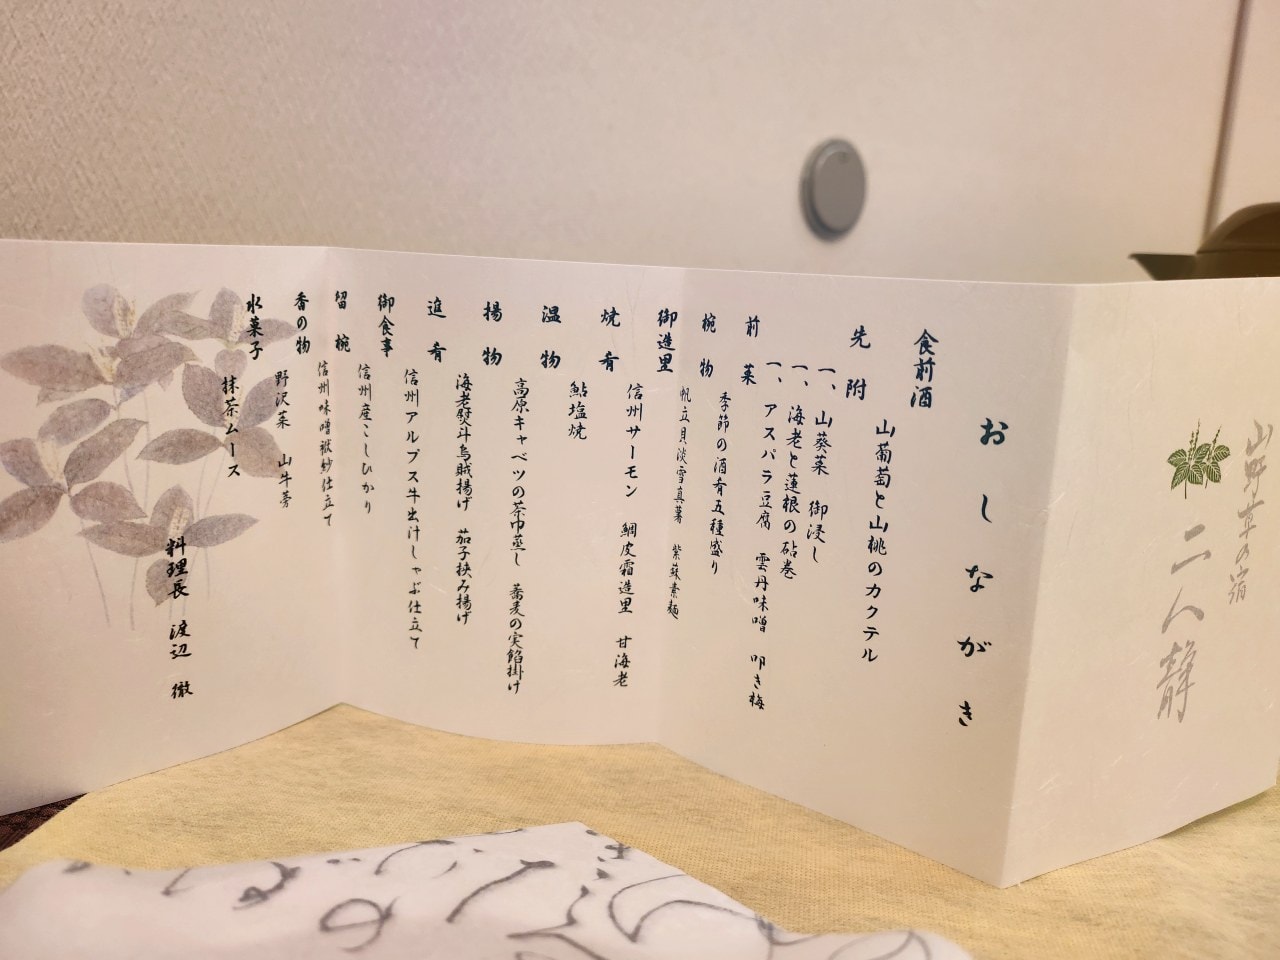 山野草の宿
二人静
おしながき
食前酒
山葡萄と山桃のカクテル
先附
一、山葵菜 御浸し
一、海老と蓮根の砧巻
一、アスパラ豆腐 雲丹味噌 叩き梅
前菜
季節の酒肴五種盛り
椀物
帆立貝淡雪真薯 紫蘇素麺
御造里
信州サーモン 鯛皮霜造里 甘海老
焼肴
鮎塩焼
温物
高原キャベツの茶巾蒸し 蕎麦の実餡掛け
揚物
海老熨斗烏賊揚げ 茄子挟み揚げ
進肴
信州アルプス牛出汁しゃぶ仕立て
御食事
信州産こしひかり
留椀
信州味噌袱紗仕立て
香の物
野沢菜 山牛蒡
水菓子
抹茶ムース
料理長 渡辺 徹